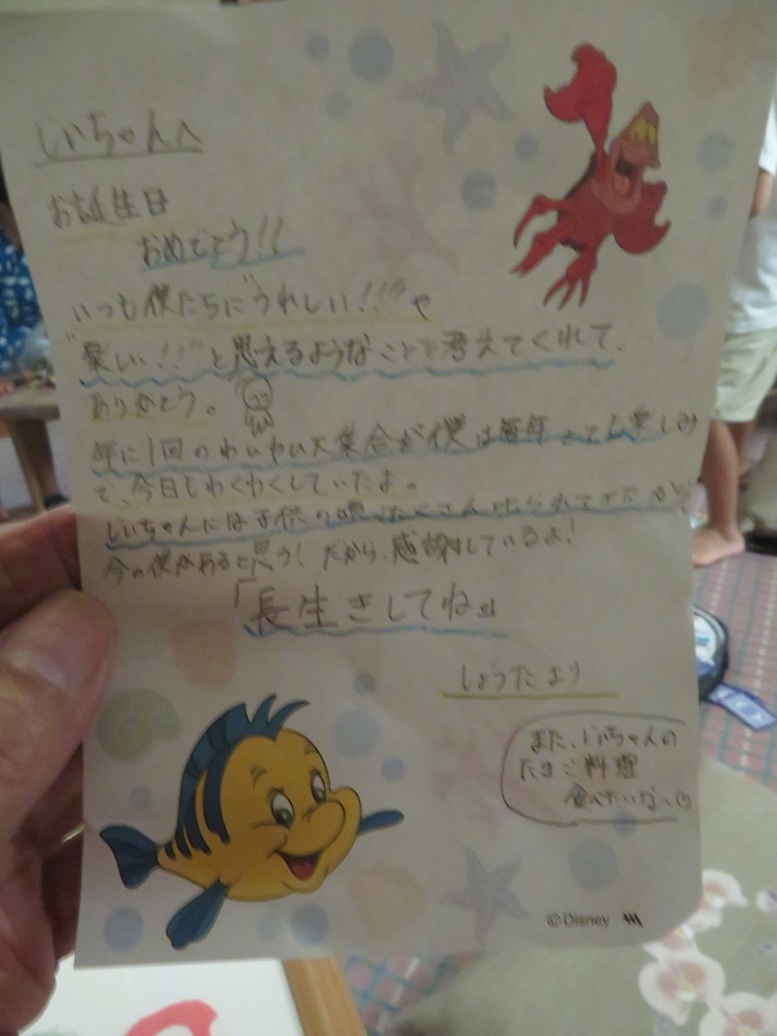 じいちゃんへ
お誕生日
おめでとう!!
いつも僕たちに"うれしい!!"や
"楽しい!!"と思えるようなことを考えてくれて、
ありがとう。
年に1回のわいわい大集合が僕は毎年とても楽しみ
で、今日もわくわくしていたよ。
じいちゃんには子供の頃たくさん叱られてきたから
今の僕があると思う!だから、感謝しているよ!
「長生きしてね」
しょうたより
また、じいちゃんの
たまご料理
食べたいな〜
©Disney